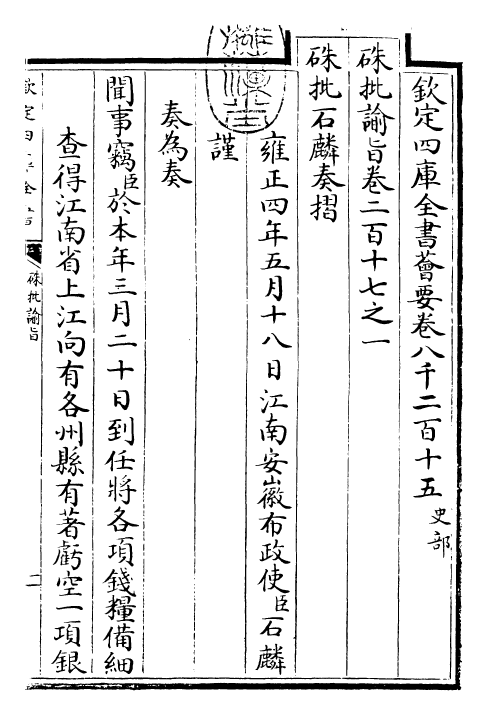 欽定四庫全書薈要卷八千二百十五 史部
硃批諭旨卷二百十七之一
硃批石麟奏摺
雍正四年五月十八日江南安徽布政使臣石麟
謹
奏為奏
聞事竊臣於本年三月二十日到任將各項錢糧備細
查得江南省上江向有各州縣有著虧空一項銀
硃批諭旨